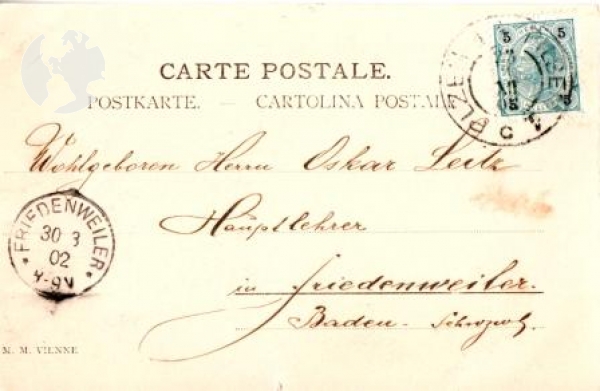 CARTE POSTALE.
POSTKARTE. — CARTOLINA POSTALE
5 5
PILSEN
PLZEŇ
Wohlgeboren Herrn Oskar Leitz
Hauptlehrer
in Friedenweiler.
Baden - Schwzwld
FRIEDENWEILER
30 3
02
8-9V
M. M. VIENNE